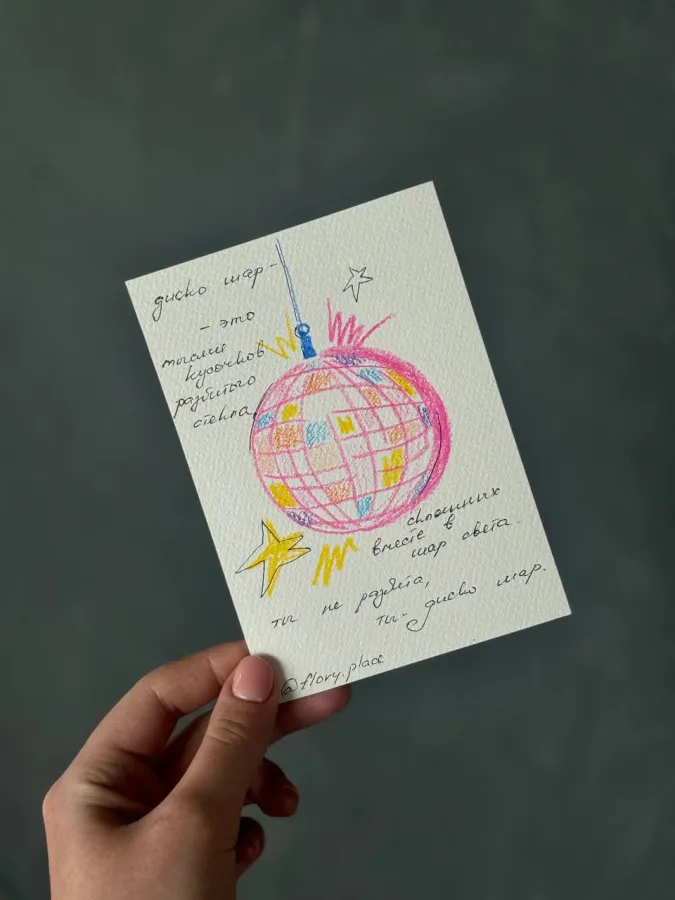 диско шар -
- это
тысячи
кусочков
разбитого
стекла,
склеенных
вместе в
шар света.
ты не разбита,
ты - диско шар.
@flory.place